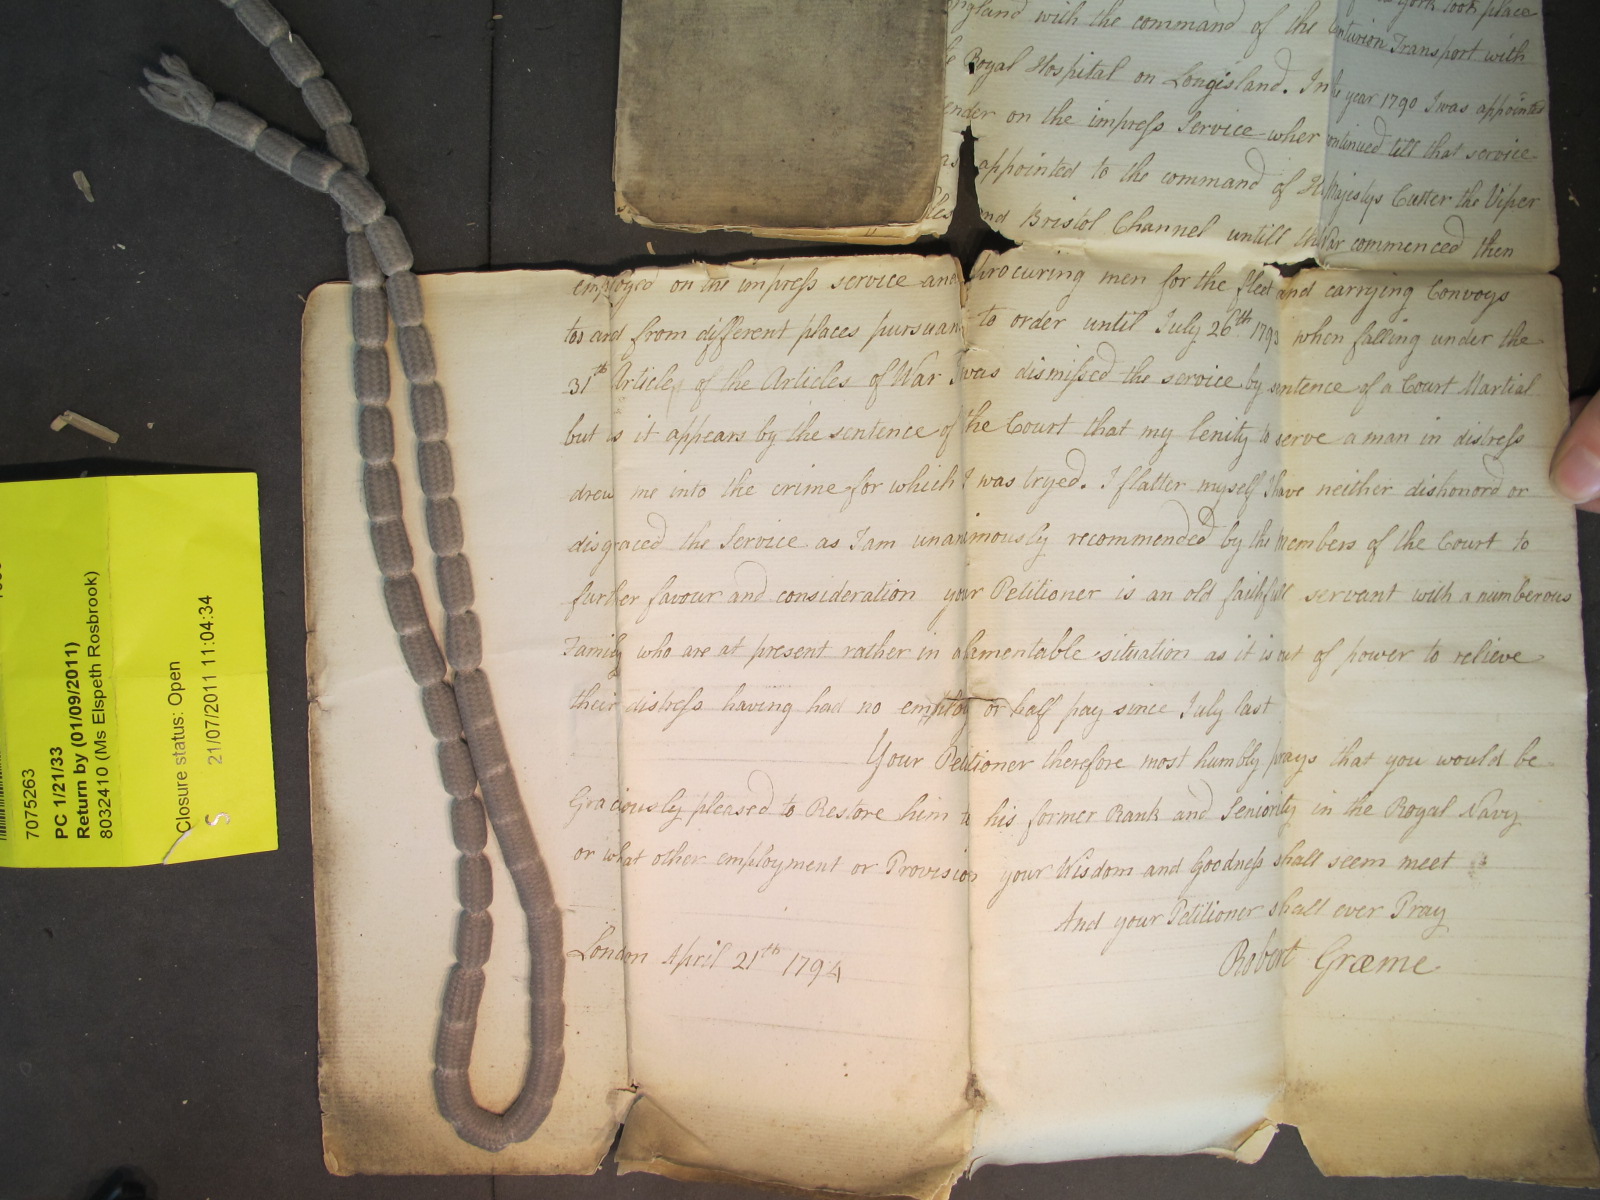 York took place
England with the command of the Centurion Transport with
Royal Hospital on Longisland. In the year 1790 I was appointed
tender on the impress Service wher continued till that service
was appointed to the command of His Majestys Cutter the Viper
and Bristol Channel untill the War commenced then
employed on the impress service and procuring men for the fleet and carrying Convoys
too and from different places pursuant to order until July 26th 1793 when falling under the
31th Article of the Articles of War I was dismissed the service by sentence of a Court Martial
but as it appears by the sentence of the Court that my lenity to serve a man in distress
drew me into the crime for which I was tryed. I flatter myself I have neither dishonord or
disgraced the Service as I am unanimously recommended by the Members of the Court to
further favour and consideration your Petitioner is an old faithfull servant with a numberous
Family who are at present rather in a lamentable situation as it is out of power to relieve
their distress having had no employ or half pay since July last
Your Petitioner therefore most humbly prays that you would be
Graciously pleased to Restore him to his former Rank and Seniority in the Royal Navy
or what other employment or Provision your Wisdom and Goodness shall seem meet
And your Petitioner shall ever Pray
London April 21th 1794
Robert Græme
7075263
PC 1/21/33
Return by (01/09/2011)
8032410 (Ms Elspeth Rosbrook)
Closure status: Open
21/07/2011 11:04:34
S